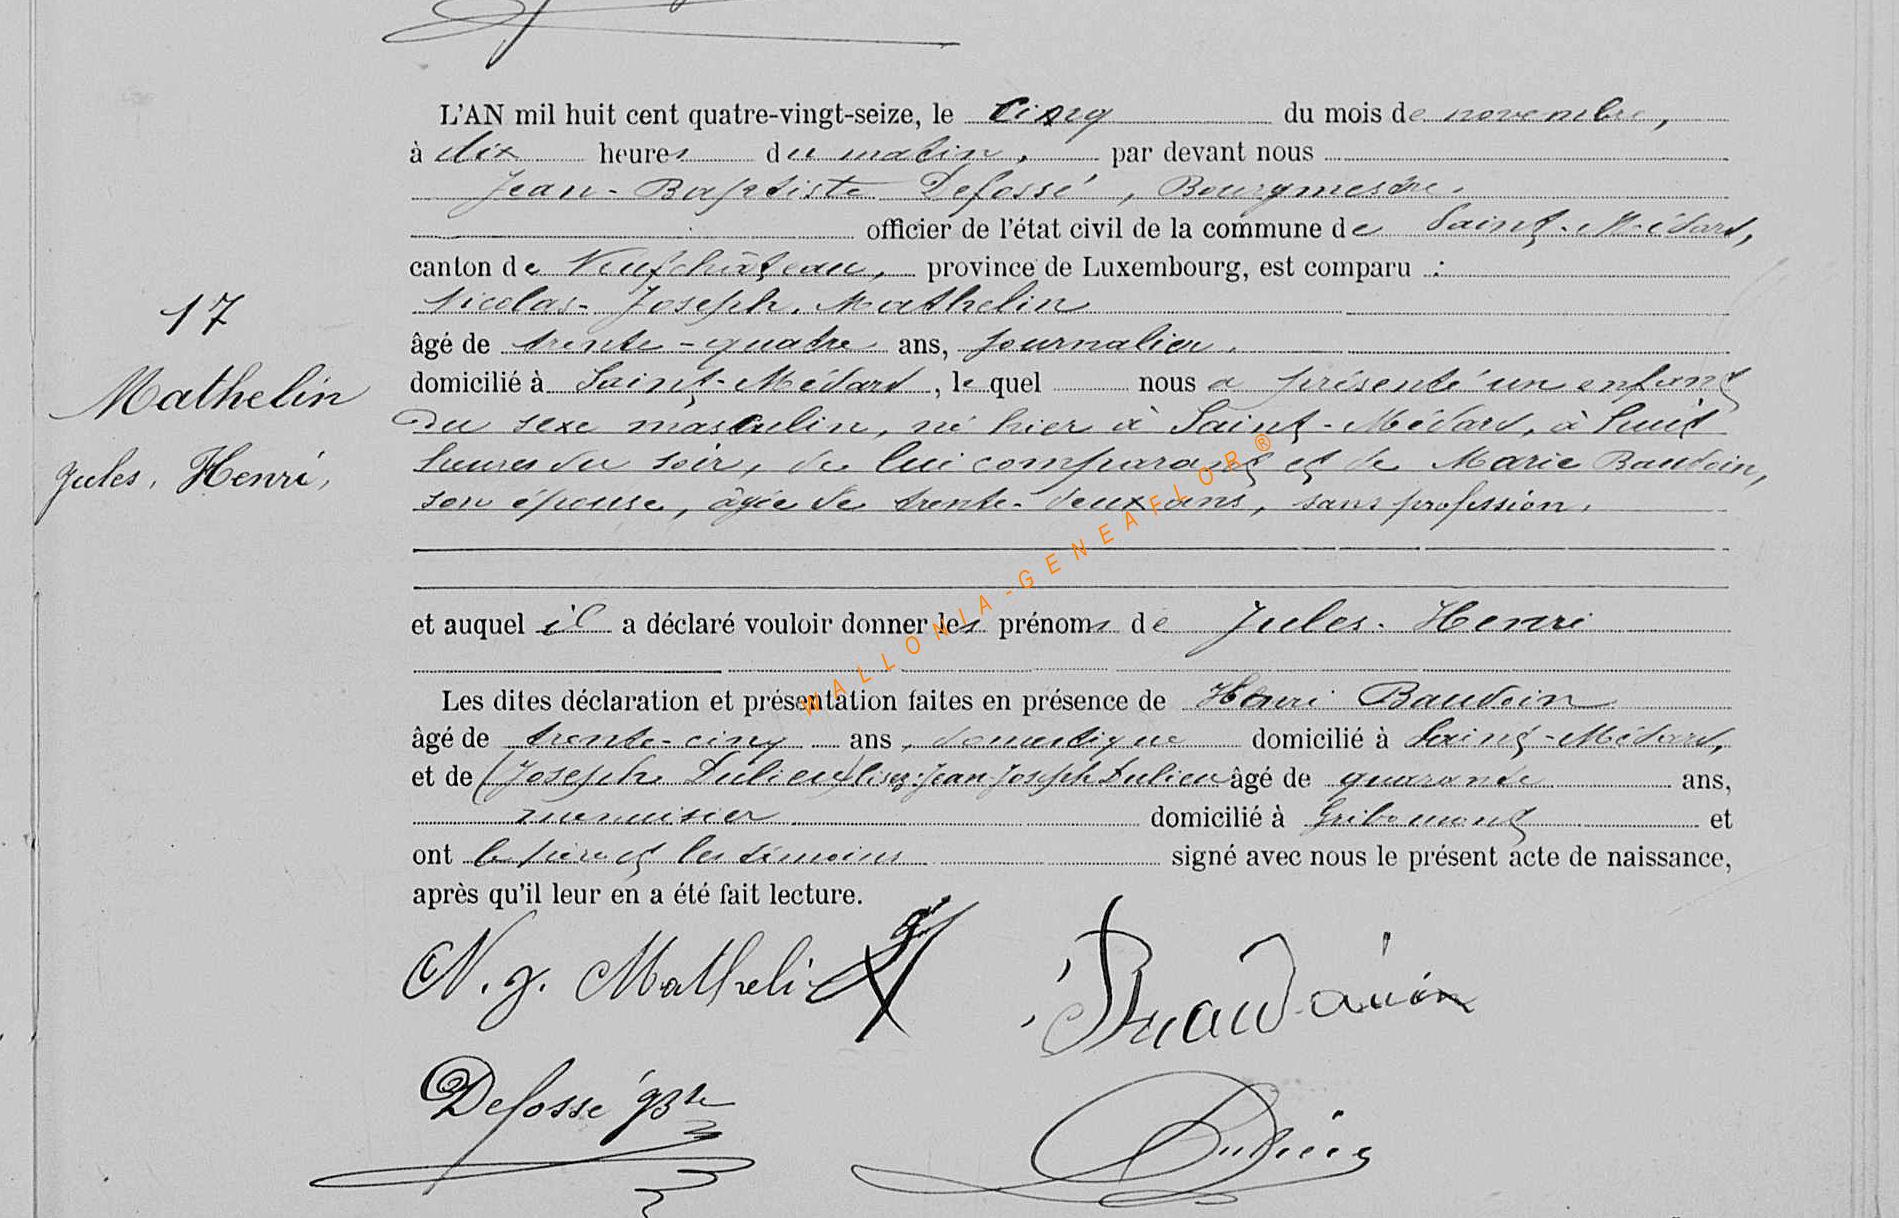 L'AN mil huit cent quatre-vingt-seize, le cinq du mois de novembre,
à dix heures du matin, par devant nous
Jean-Baptiste Defossé, Bourgmestre,
officier de l'état civil de la commune de Saint-Médard,
canton de Neufchâteau, province de Luxembourg, est comparu :
Nicolas-Joseph Mathelin
âgé de trente-quatre ans, journalier,
domicilié à Saint-Médard, lequel nous a présenté un enfant
du sexe masculin, né hier à Saint-Médard, à huit
heures du soir, de lui comparant et de Marie Baudoin,
son épouse, âgée de trente-deux ans, sans profession,
et auquel il a déclaré vouloir donner les prénoms de Jules-Henri
Les dites déclaration et présentation faites en présence de Henri Baudoin
âgé de trente-cinq ans, domestique domicilié à Saint-Médard,
et de (Joseph Dulieu) lisez: Jean-Joseph Dulieu âgé de quarante ans,
menuisier domicilié à Gribomont et
ont le père et les témoins signé avec nous le présent acte de naissance,
après qu'il leur en a été fait lecture.
17
Mathelin
Jules, Henri,
N. J. Mathelin
Defossé JBte
WALLONIA-GENEAFLOR®